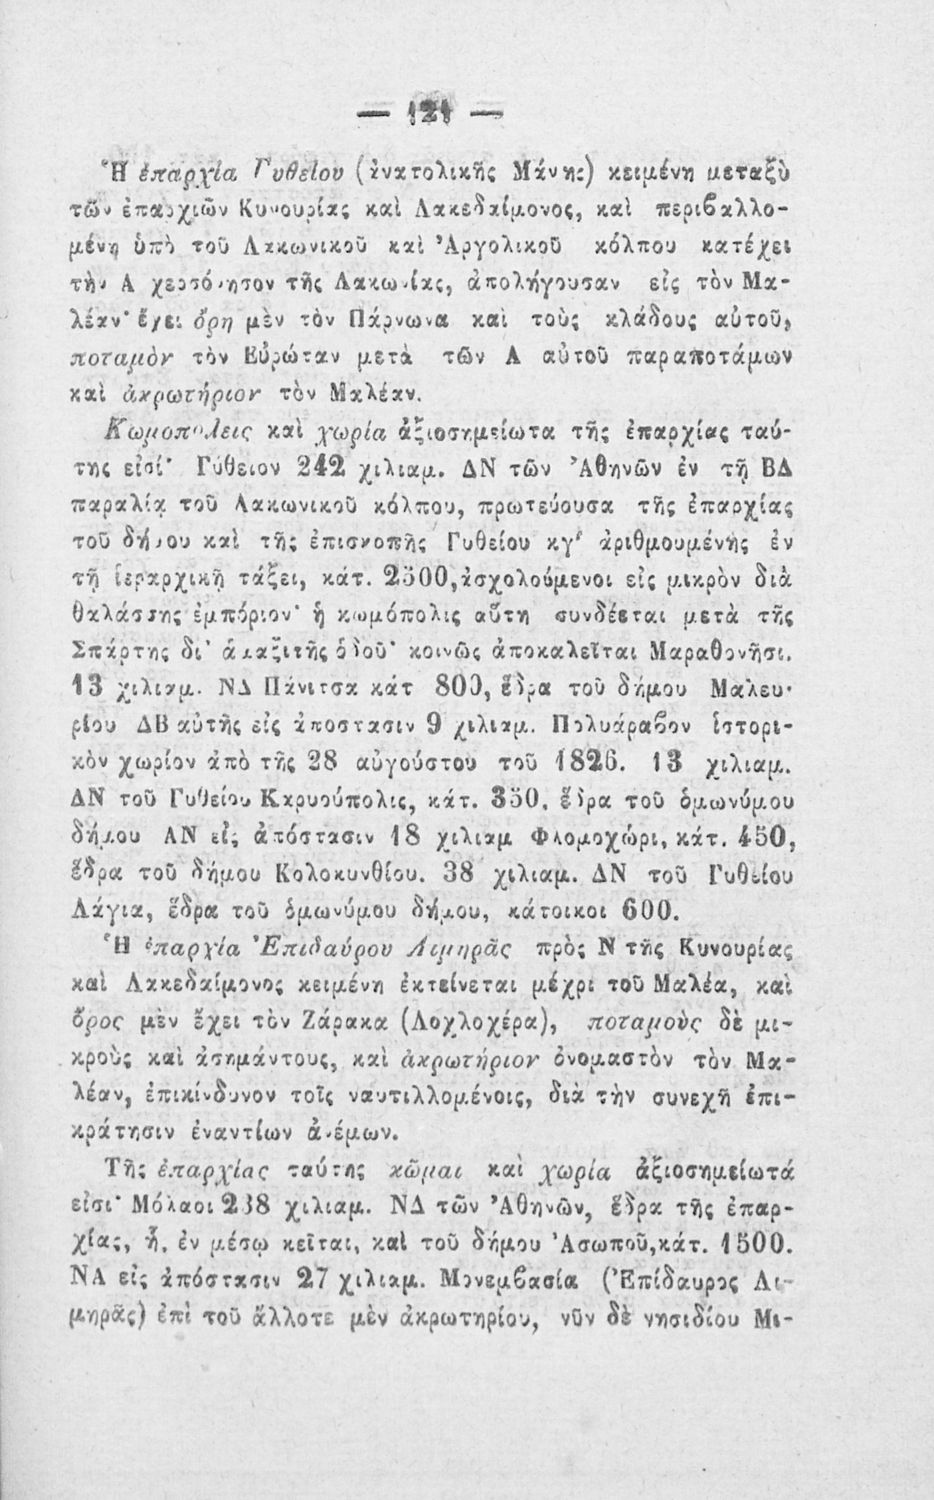 — 121 —
Ἡ ἐπαρχία Γυθείου (ἀνατολικῆς Μάνης) κειμένη μεταξὺ
τῶν ἐπαρχιῶν Κυνουρίας καὶ Λακεδαίμονος, καὶ περιβαλλο-
μένη ὑπὸ τοῦ Λακωνικοῦ καὶ Ἀργολικοῦ κόλπου κατέχει
τὴν Α χερσόνησον τῆς Λακωνίας, ἀπολήγουσαν εἰς τὸν Μα-
λέαν· ἔχει ὄρη μὲν τὸν Πάρνωνα καὶ τοὺς κλάδους αὐτοῦ,
ποταμὸν τὸν Εὐρώταν μετὰ τῶν Α αὐτοῦ παραποτάμων
καὶ ἀκρωτήριον τὸν Μαλέαν.
Κωμοπόλεις καὶ χωρία ἀξιοσημείωτα τῆς ἐπαρχίας ταύ-
της εἰσί· Γύθειον 242 χιλιαμ. ΔΝ τῶν Ἀθηνῶν ἐν τῇ ΒΔ
παραλίᾳ τοῦ Λακωνικοῦ κόλπου, πρωτεύουσα τῆς ἐπαρχίας
τοῦ δήμου καὶ τῆς ἐπισκοπῆς Γυθείου κγ′ ἀριθμουμένης ἐν
τῇ ἱεραρχικῇ τάξει, κάτ. 2500, ἀσχολούμενοι εἰς μικρὸν διὰ
θαλάσσης ἐμπόριον· ἡ κωμόπολις αὕτη συνδέεται μετὰ τῆς
Σπάρτης δι' ἁμαξιτῆς ὁδοῦ· κοινῶς ἀποκαλεῖται Μαραθονῆσι.
13 χιλιαμ. ΝΔ Πάνιτσα κάτ 800, ἕδρα τοῦ δήμου Μαλευ-
ρίου ΔΒ αὐτῆς εἰς ἀποστασιν 9 χιλιαμ. Πολυάραβον ἱστορι-
κὸν χωρίον ἀπὸ τῆς 28 αὐγούστου τοῦ 1826. 13 χιλιαμ.
ΔΝ τοῦ Γυθείου Καρυούπολις, κάτ. 350, ἕδρα τοῦ ὁμωνύμου
δήμου ΑΝ εἰς ἀπόστασιν 18 χιλιαμ Φλομοχώρι, κάτ. 450,
ἕδρα τοῦ δήμου Κολοκυνθίου. 38 χιλιαμ. ΔΝ τοῦ Γυθείου
Λάγια, ἕδρα τοῦ ὁμωνύμου δήμου, κάτοικοι 600.
Ἡ ἐπαρχία Ἐπιδαύρου Λιμηρᾶς πρὸς Ν τῆς Κυνουρίας
καὶ Λακεδαίμονος κειμένη ἐκτείνεται μέχρι τοῦ Μαλέα, καὶ
ὄρος μὲν ἔχει τὸν Ζάρακα (Λοχλοχέρα), ποταμοὺς δὲ μι-
κροὺς καὶ ἀσημάντους, καὶ ἀκρωτήριον ὀνομαστὸν τὸν Μα-
λέαν, ἐπικίνδυνον τοῖς ναυτιλλομένοις, διὰ τὴν συνεχῆ ἐπι-
κράτησιν ἐναντίων ἀνέμων.
Τῆς ἐπαρχίας ταύτης κῶμαι καὶ χωρία ἀξιοσημείωτά
εἰσι· Μόλαοι 238 χιλιαμ. ΝΔ τῶν Ἀθηνῶν, ἕδρα τῆς ἐπαρ-
χίας, ἧ, ἐν μέσῳ κεῖται, καὶ τοῦ δήμου Ἀσωποῦ, κάτ. 1500.
ΝΑ εἰς ἀπόστασιν 27 χιλιαμ. Μονεμβασία (Ἐπίδαυρος Λι-
μηρᾶς) ἐπὶ τοῦ ἄλλοτε μὲν ἀκρωτηρίου, νῦν δὲ νησιδίου Μι-